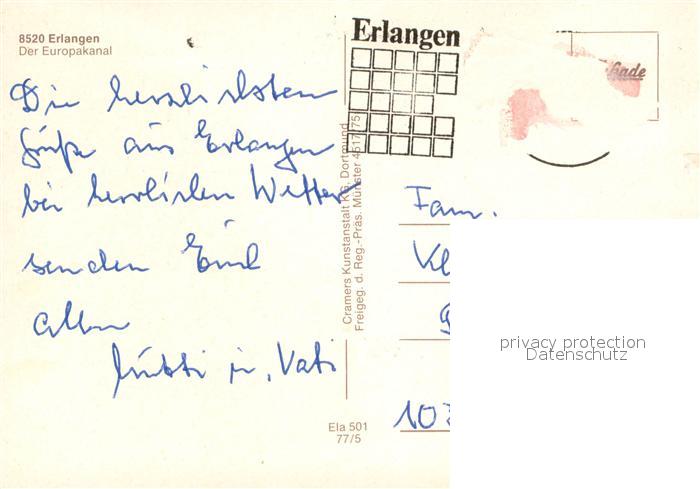 8520 Erlangen
Der Europakanal
Die herzlichsten
Grüße aus Erlangen
bei herrlichen Wetter
senden Euch
allen
Mutti u. Vati
Erlangen
Cramers Kunstanstalt KG, Dortmund
Freigeg. d. Reg.-Präs. Münster 4517/75
Ela 501
77/5
Fam.
Kl
102
privacy protection
Datenschutz